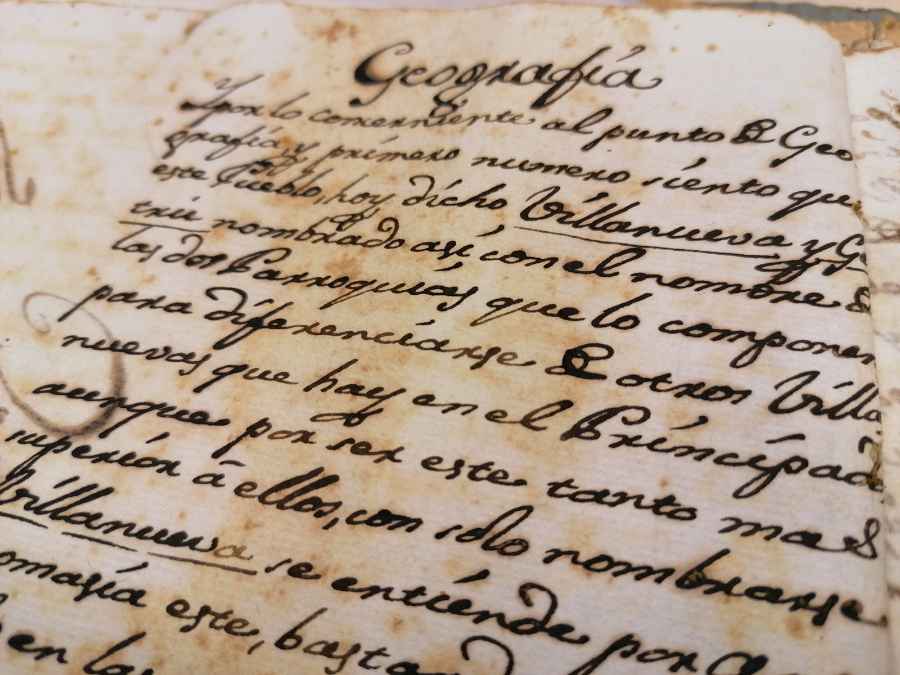 Geografía
Y por lo concerniente al punto de Geo
grafía y primero numero siento que
este Pueblo, hoy dicho Villanueva y Ge
trú nombrado así con el nombre de
las dos Parroquias que lo componen
para diferenciarse de otros Villa
nuevas que hay en el Principad
aunque por ser este tanto mas
superior á ellos, con solo nombrarse
Villanueva se entiende por
omasía este, bastan
en las